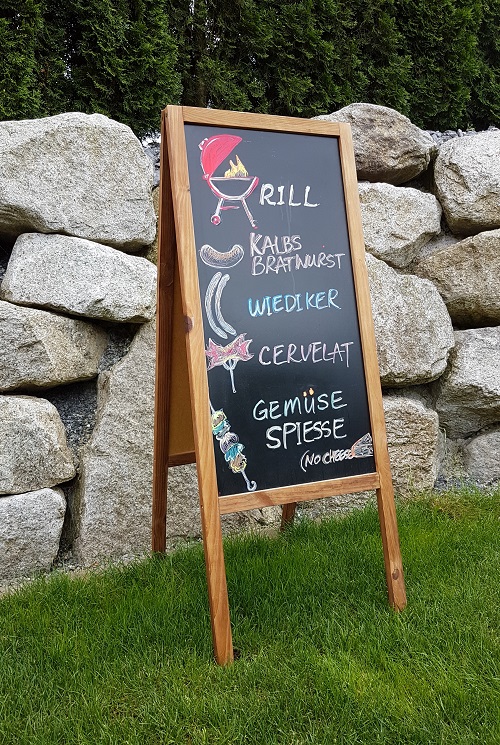 RILL
KALBS
BRATWURST
WIEDIKER
CERVELAT
GEMÜSE
SPIESSE
(NO CHEESE